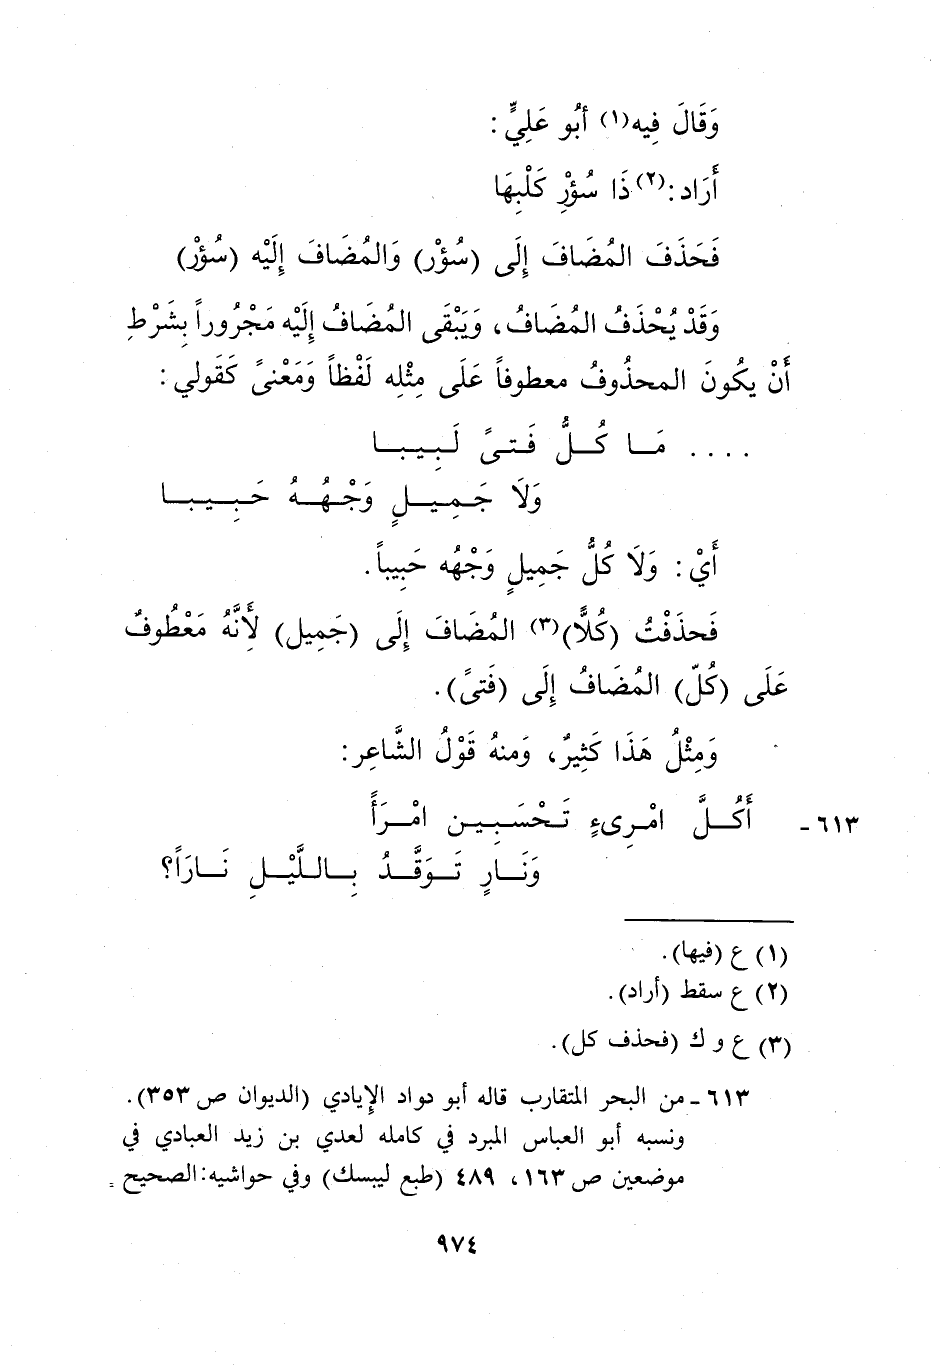 وَقَالَ فِيه(١) أَبُو عَلِيٍّ :
أَرَاد :(٢) ذَا سُؤْرِ كَلْبِهَا
فَحَذَفَ المُضَافَ إِلَى (سُؤْر) وَالمُضَافَ إِلَيْه (سُؤْر)
وَقَدْ يُحْذَفُ المُضَافُ، وَيَبْقَى المُضَافُ إِلَيْه مَجْرُوراً بِشَرْطِ
أَنْ يكُونَ المحذُوفُ معطوفاً عَلَى مِثْلِه لَفْظاً وَمَعْنىً كَقَولي :
.... مَا كُلُّ فَتىً لَبِيبا
وَلَا جَمِيلٍ وَجْهُهُ حَبِيبا
أَيْ : وَلَا كُلُّ جَمِيلٍ وَجْهُه حَبِيباً.
فَحذَفْتُ (كُلًّا)(٣) المُضَافَ إِلَى (جَمِيل) لأَنَّهُ مَعْطُوفٌ
عَلَى (كُلّ) المُضَافُ إِلَى (فَتىً).
وَمِثْلُ هَذَا كَثِيرٌ، وَمنهُ قَوْلُ الشَّاعِر :
٦١٣- أَكُلَّ امْرِىءٍ تَحْسَبِين امْرَأً
وَنَارٍ تَوَقَّدُ بِاللَّيْلِ نَارَاً؟
(١) ع (فيها).
(٢) ع سقط (أراد).
(٣) ع و ك (فحذف كل).
٦١٣- من البحر المتقارب قاله أبو دواد الإيادي (الديوان ص ٣٥٣).
ونسبه أبو العباس المبرد في كامله لعدي بن زيد العبادي في
موضعين ص ١٦٣، ٤٨٩ (طبع ليبسك) وفي حواشيه : الصحيح =
٩٧٤